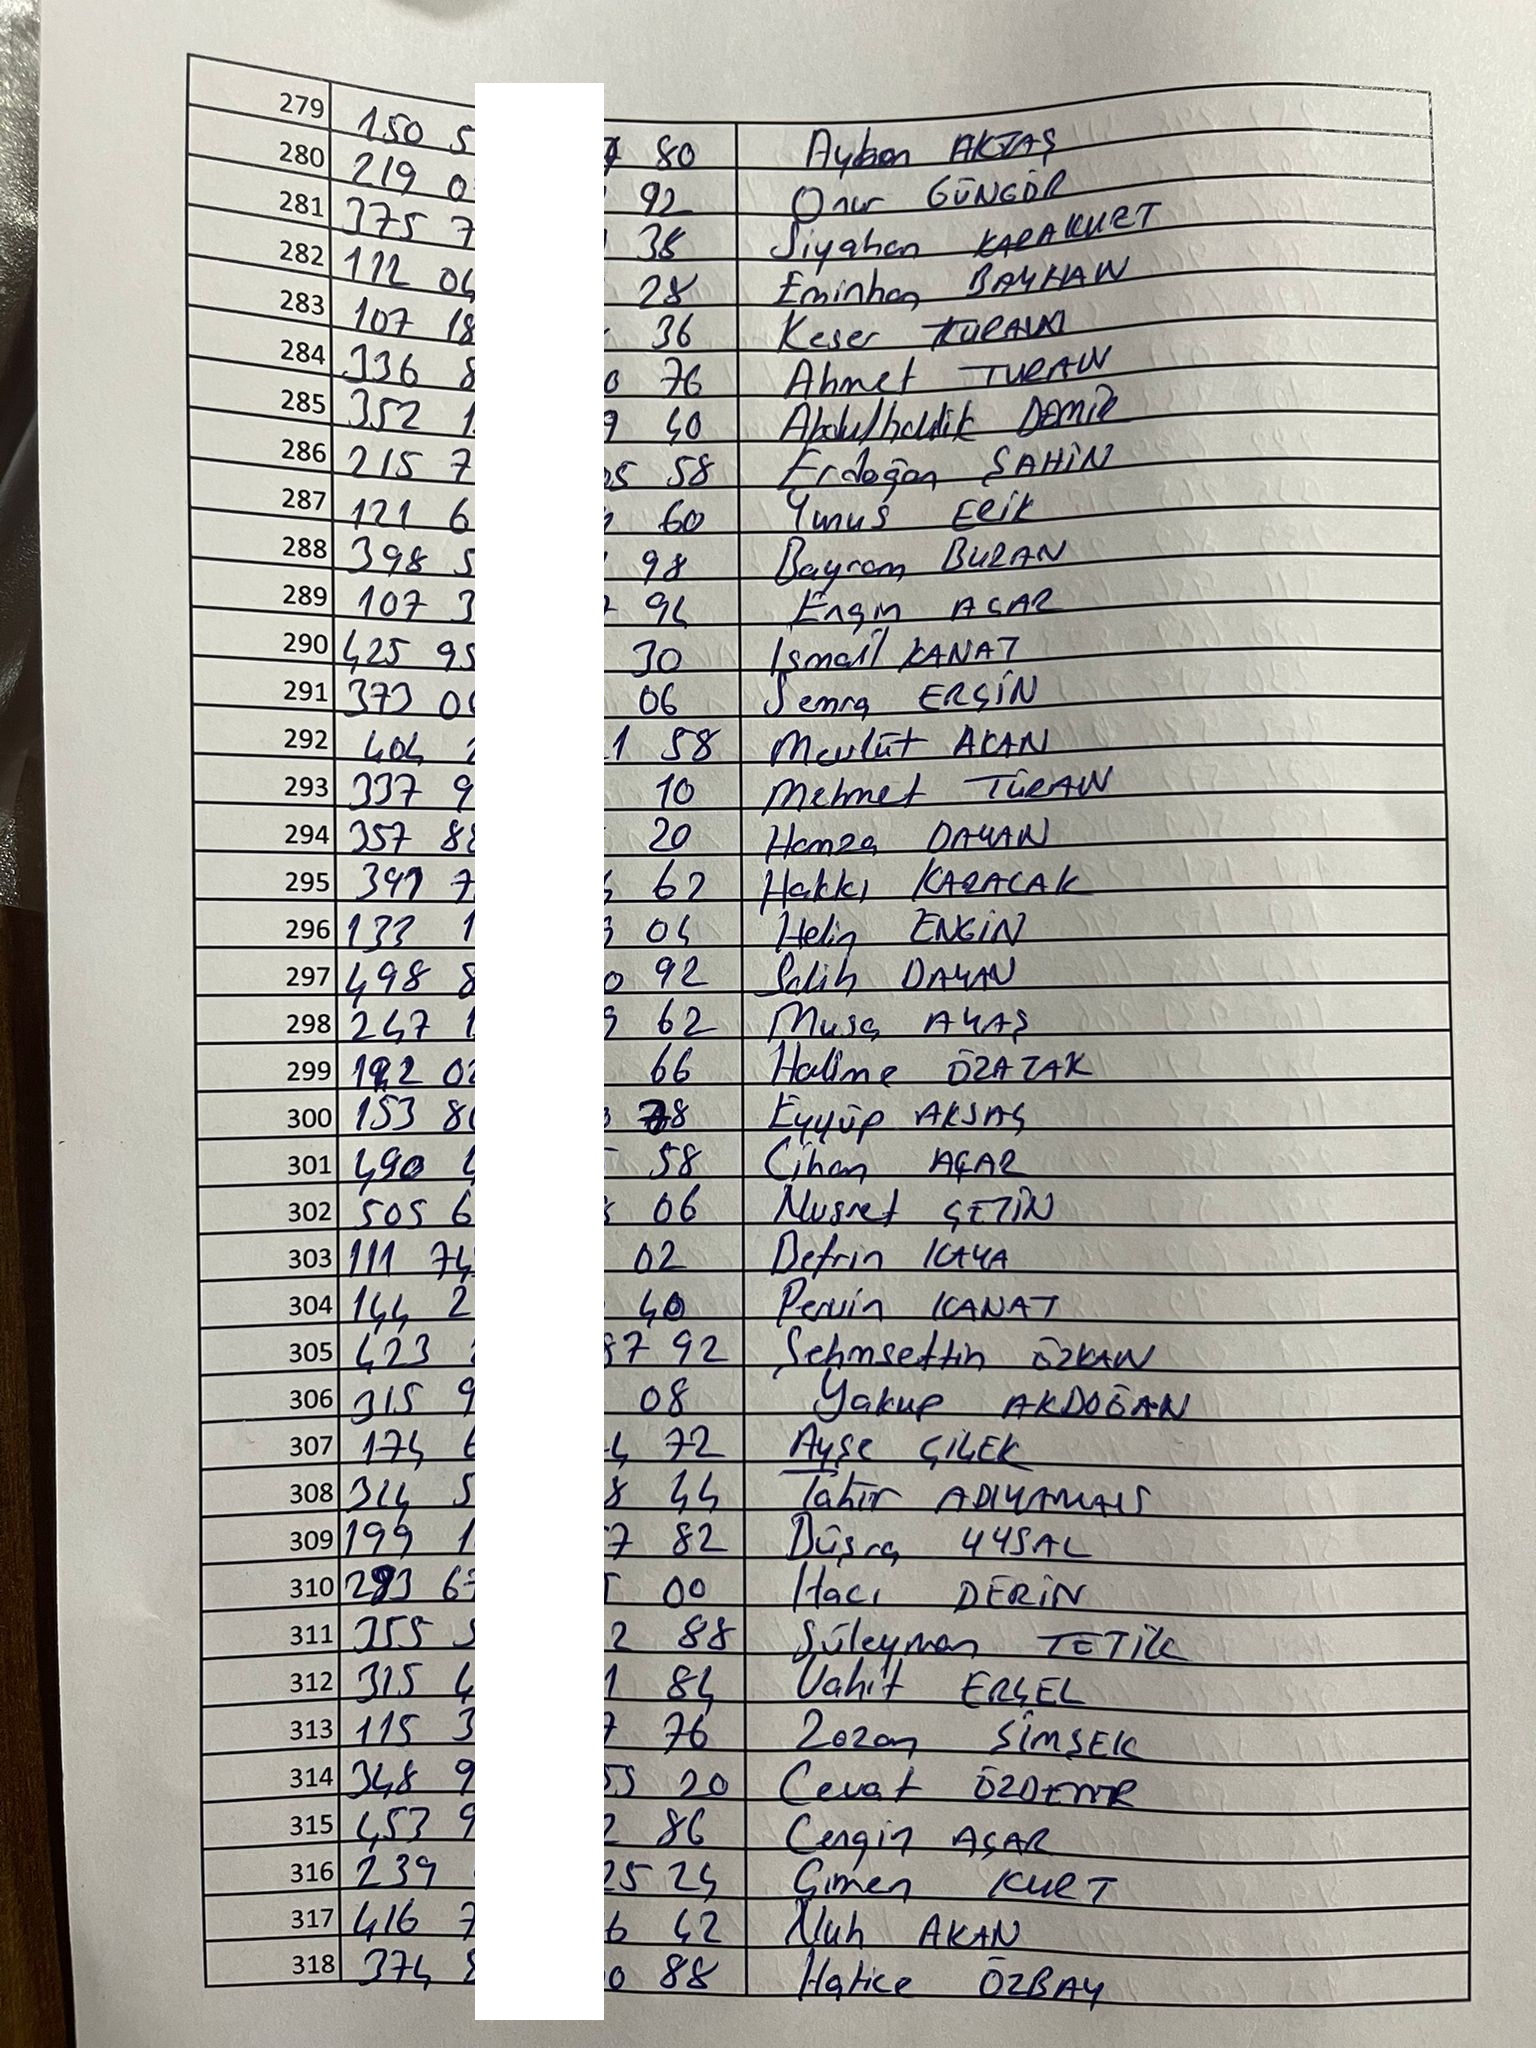 279 150 5 80 Ayhan AKTAŞ
280 219 0 92 Onur GÜNGÖR
281 375 7 38 Siyahan KARAKURT
282 112 04 28 Eminhan BAYHAN
283 107 18 36 Keser TURAN
284 336 8 0 76 Ahmet TURAN
285 352 1 9 40 Abdulhalik DEMİR
286 215 7 05 58 Erdoğan ŞAHİN
287 121 6 60 Yunus ERİK
288 398 5 98 Bayram BURAN
289 107 3 94 Engin ACAR
290 425 95 30 Ismail KANAT
291 373 06 06 Semra ERÇİN
292 404 1 58 Mevlüt AKAN
293 337 9 10 Mehmet TURAN
294 357 88 20 Hamza DAYAN
295 391 7 62 Hakkı KARACAK
296 133 1 3 04 Helin ENGİN
297 498 8 0 92 Salih DAYAN
298 247 1 9 62 Musa AYAŞ
299 192 02 66 Halime ÖZATAK
300 153 86 78 Eyyüp AKSAŞ
301 490 4 58 Cihan AÇAR
302 505 6 06 Nusret ÇETİN
303 111 74 02 Befrin KAYA
304 144 2 40 Pervin KANAT
305 423 87 92 Şehmsettin ÖZKAN
306 315 9 08 Yakup AKDOĞAN
307 174 6 4 72 Ayşe ÇİÇEK
308 314 5 8 44 Tahir ADIYAMAN
309 199 1 7 82 Büşra UYSAL
310 293 67 00 Hacı DERİN
311 355 5 2 88 Süleyman TETİK
312 315 4 1 84 Vahit ERÇEL
313 115 3 7 76 Zozan ŞİMŞEK
314 348 9 55 20 Cevat ÖZDEMİR
315 453 9 2 86 Cengin AÇAR
316 239 25 24 Çimen KURT
317 416 7 6 42 Nuh AKAN
318 374 8 0 88 Hatice ÖZBAY